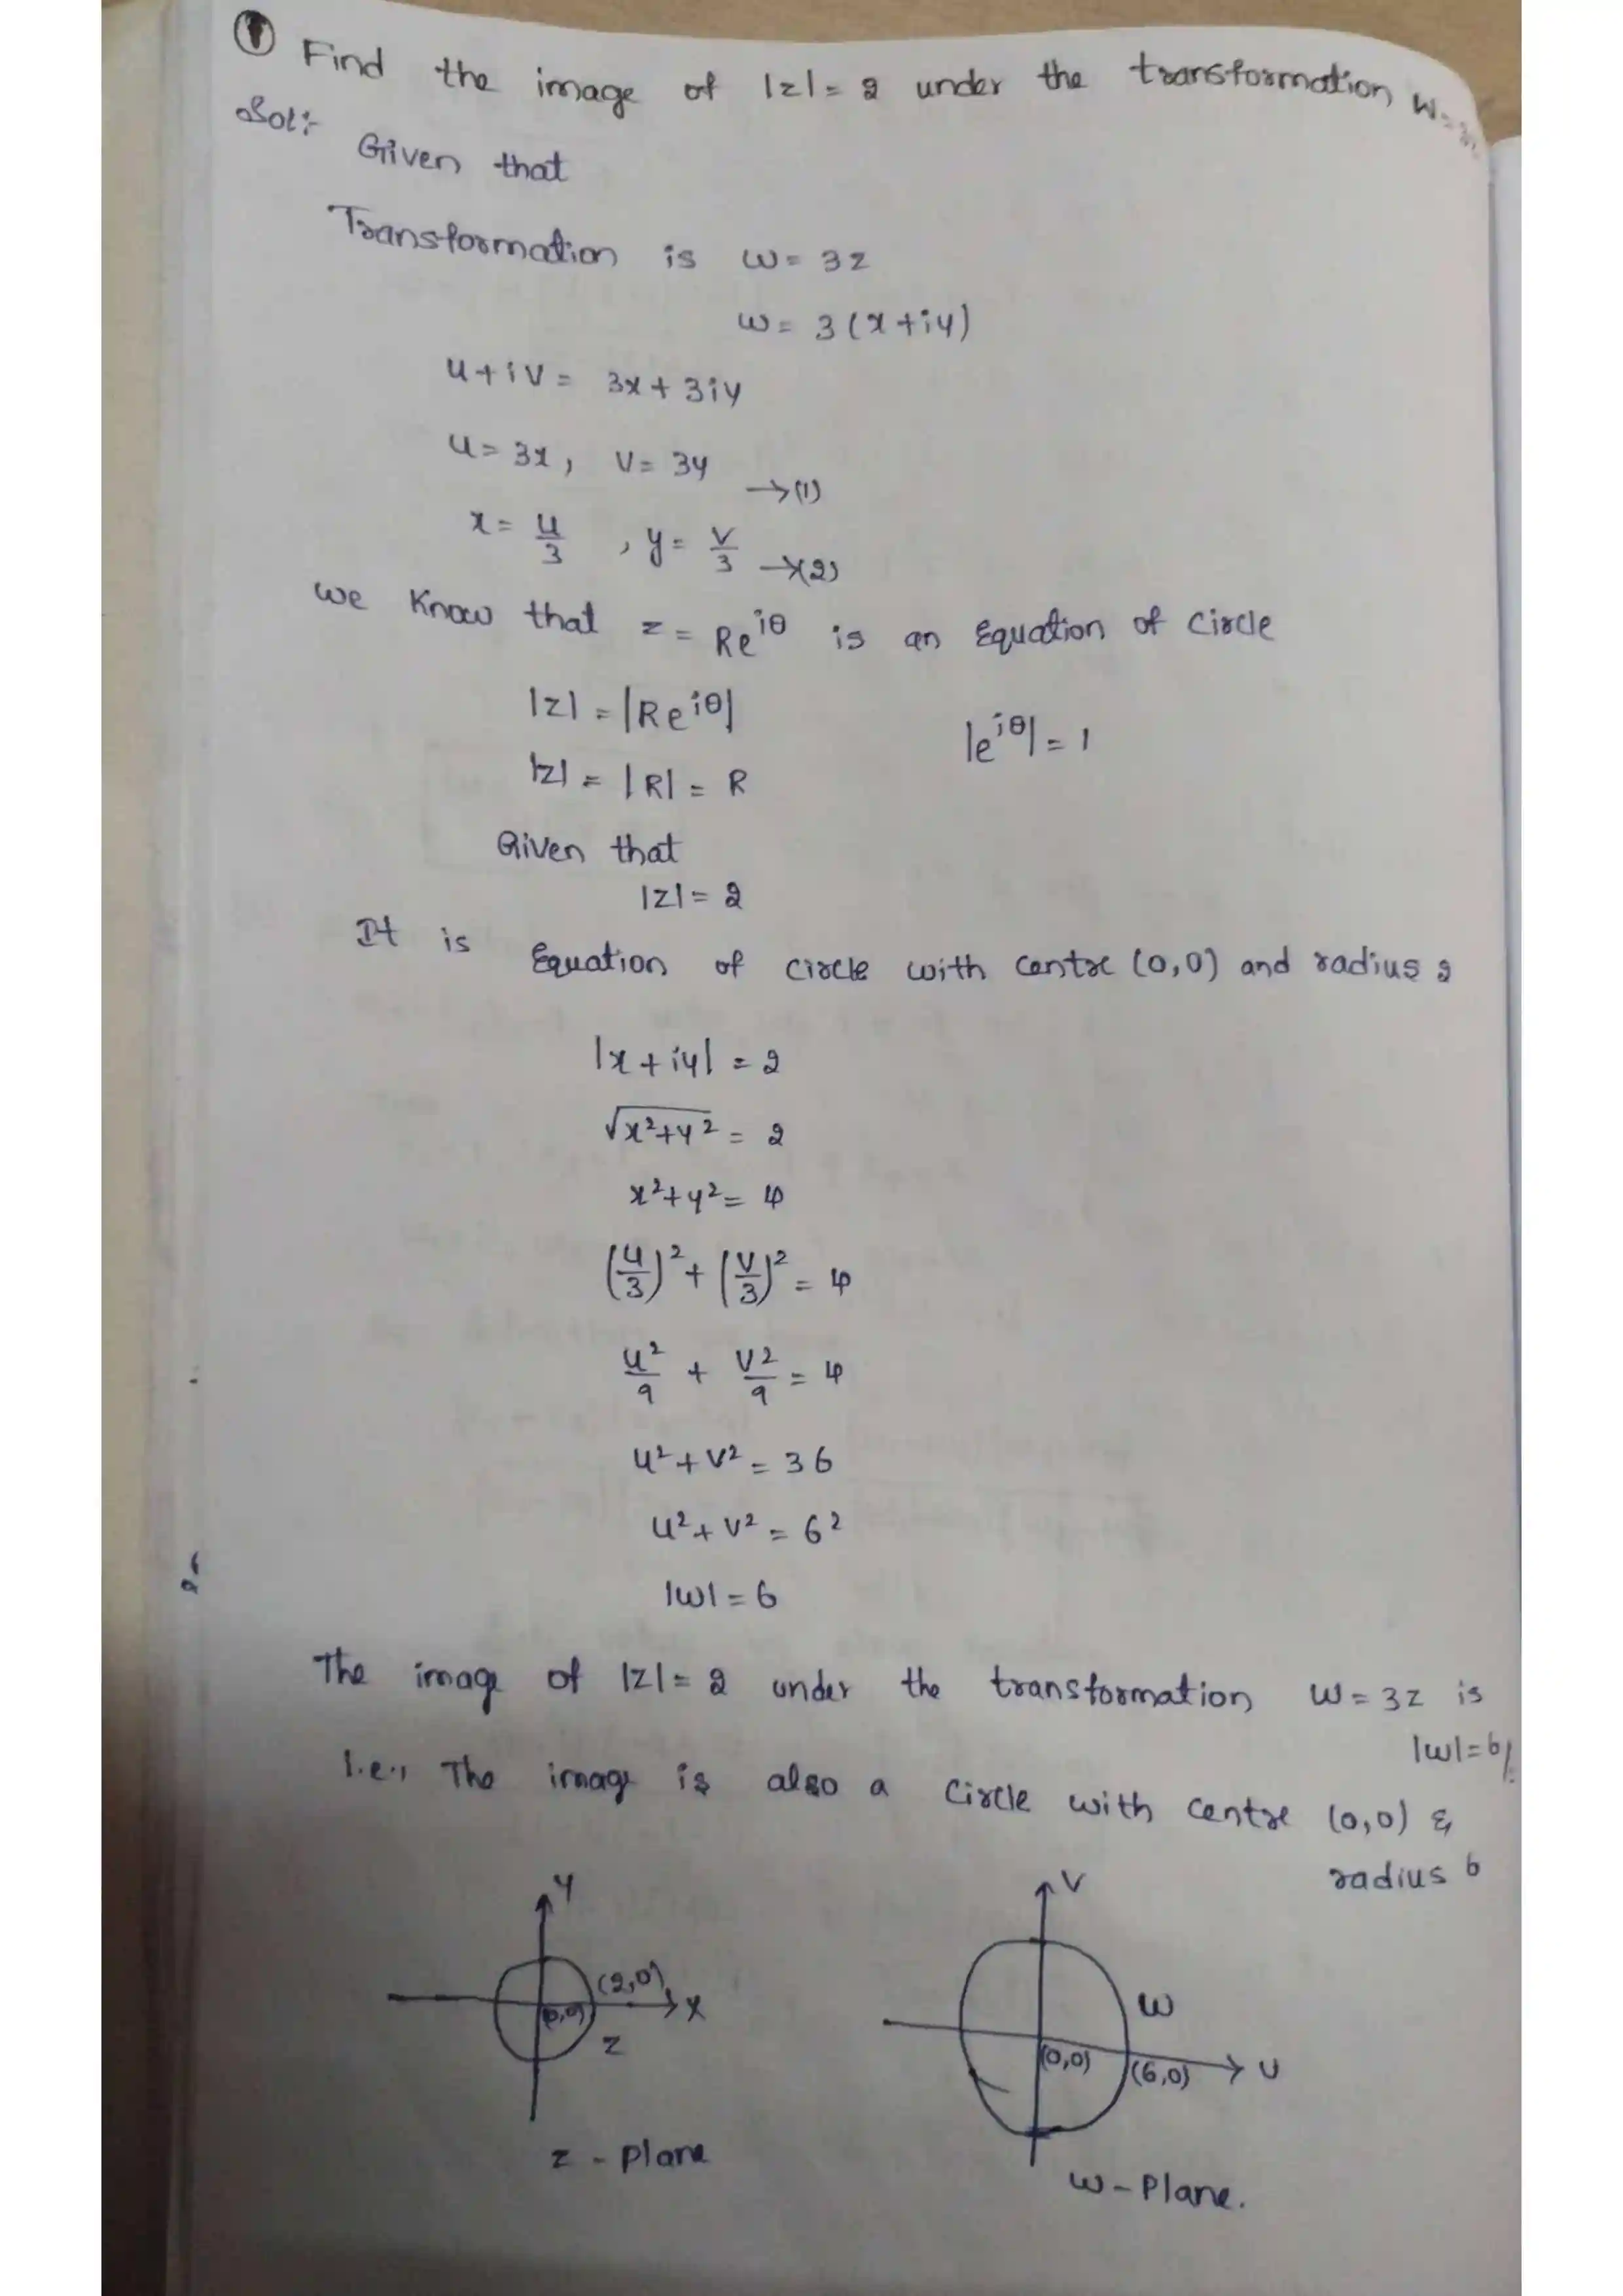 ① Find the image of |z| = 2 under the transformation w=3z
Sol:- Given that
Transformation is w = 3z
w = 3(x+iy)
u+iv = 3x+3iy
u=3x, v=3y →(1)
x = u/3 , y = v/3 →(2)
We Know that z = Re^{iθ} is an Equation of Circle
|z| = |Re^{iθ}| |e^{iθ}| = 1
|z| = |R| = R
Given that
|z| = 2
It is Equation of circle with centre (0,0) and radius 2
|x+iy| = 2
√x²+y² = 2
x²+y² = 4
(u/3)² + (v/3)² = 4
u²/9 + v²/9 = 4
u²+v² = 36
u²+v² = 6²
|w| = 6
The image of |z| = 2 under the transformation w = 3z is
|w|=6//.
I.e., The image is also a Circle with centre (0,0) &
radius 6
Y
(2,0)
X
(0,0)
z
z - plane
V
w
(0,0)
(6,0)
U
w - Plane.